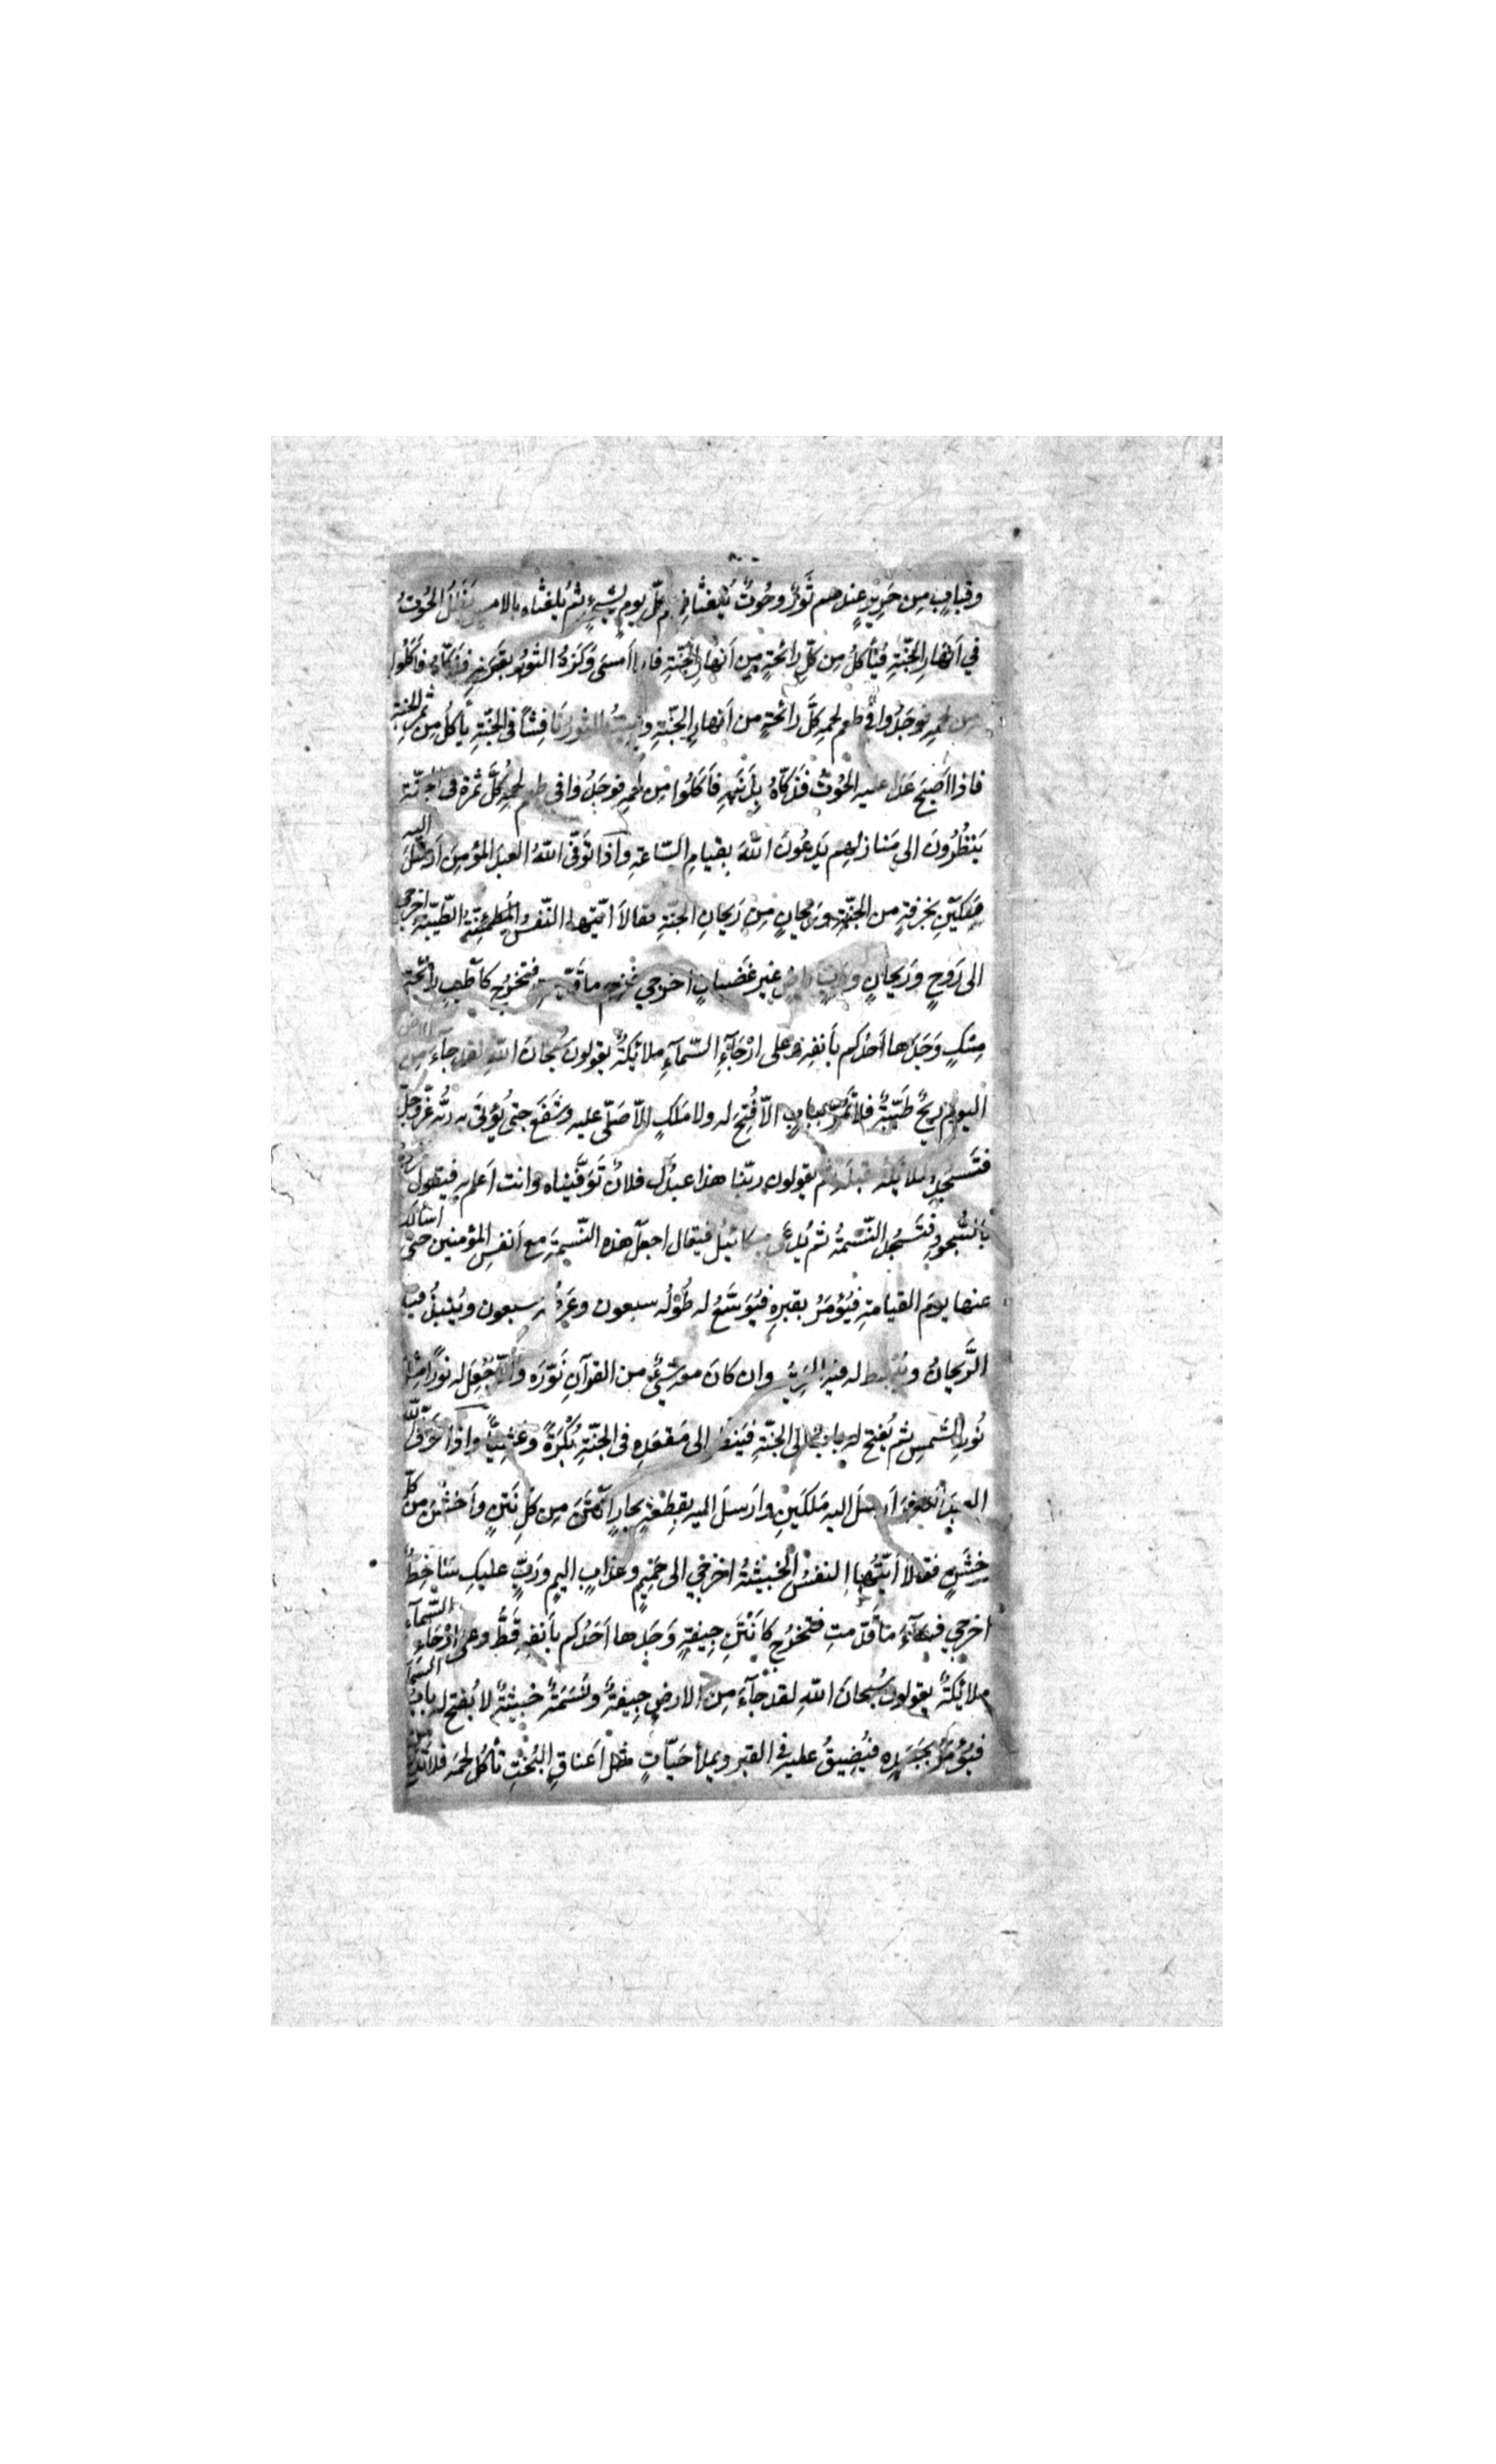 وقبابٍ مِن حَرِيرٍ عندهم ثَورٌ وحُوتٌ يُلغثان كلّ يومٍ بشيءٍ ثم يلغثاه بالامس يَظَلُّ الحُوتُ
في أنهارِ الجَنّةِ فيَأكلُ مِن كلّ رائحةٍ مِن أنهارِ الجنّةِ فاذا أَمسَى وَكَزَهُ الثَورُ بقَرنِهِ فذَكّاهُ فأَكَلُوا
مِن لحمِهِ فوَجَدُوا في طعمِ لحمِهِ كلَّ رائحةٍ من أنهارِ الجنّةِ ويبيتُ الثور نافِشًا في الجنّةِ يأكلُ مِن ثمر الجنة
فاذا أَصبَحَ غَدَا عليه الحُوتُ فذَكّاهُ بِذَنَبِهِ فأَكَلُوا مِن لحمِهِ فوَجَدُوا في طعم لحمِهِ كلَّ ثمرة في الجنّة
يَنظُرُونَ الى مَنازلهم يَدعُونَ اللهَ بقيامِ السّاعةِ واذا تَوَفّى اللهُ العبدَ المؤمِنَ أرسَلَ اليه
مَلَكَينِ بخِرقةٍ من الجنّةِ ورَيحانٍ مِن رَيحانِ الجنّةِ فقالاَ ايّتها النّفسُ المُطمئِنّةُ الطّيّبةُ اخرجي
الى رَوحٍ ورَيحانٍ وربٍّ راضٍ غيرِ غَضبانٍ اخرجي فنِعم ما قدّمتِ فتخرُج كأطيبِ رائحة
مِسكٍ وَجَدَها أحدُكم بأنفِهِ وعلى ارْجَآءِ السّمآءِ ملائكةٌ يقولون سُبحانَ اللهِ لقد جآءَ مِن الارض
اليومَ ريحٌ طَيّبةٌ فلا تَمُرّ ببابٍ الاّ فُتِحَ له ولا مَلَكٍ الاّ صَلّى عليه وشَفَعَ حتى يُؤتَى به ربَّه عزّ وجلّ
فتَسجُد الملائكة قبله ثم يقولون ربّنا هذا عبدُك فلانٌ تَوَفّيناه وانت أعلم به فيقول
بالسُّجودِ فتَسجُد النَّسَمةُ ثم يُدعَى ميكائيلُ فيقال اجعَل هذه النّسمةَ مع أنفسِ المؤمنين حتى أسألك
عنها يومَ القيامةِ فيُؤمَرُ بقبرِهِ فيُوَسَّعُ له طُولُه سبعون وعَرضُه سبعون ويُنبَذُ فيه
الرَّيحانُ ويُبسَط له فيه الحرير وان كانَ معه شيءٌ من القرآنِ نَوّرَه والاّ جُعِلَ له نورًا مثل
نُورِ الشَمسِ ثم يُفتح له بابٌ الى الجنّةِ فيَنظُر الى مَقعَدِهِ في الجنّةِ بُكْرَةً وعَشِيّاً واذا تَوَفّى الله
العبدَ الكافرَ أرسلَ اليه مَلَكَينِ وارسَلَ اليه بقِطعةِ بجادٍ أنتَنَ مِن كلّ نَتنٍ وأخشَنَ مِن كلّ
خِشَنٍ فقالا أيّتُها النفسُ الخبيثةُ اخرجي الى حميمٍ وعذابٍ اليمٍ ورَبٍّ عليكِ سَاخِطٌ
اخرجي فسآءَ ما قدّمتِ فتخرُج كأَنْتَنِ جِيفةٍ وَجَدها أحَدُكم بأنفِهِ قَطُّ وعلى ارْجَاءِ السّمآء
ملائكةٌ يقولون سُبحانَ اللهِ لقد جآءَ مِن الارضِ جِيفةٌ ونَسَمَةٌ خبيثةٌ لا يُفتح له بابُ السّمآ
فيُؤمَرُ بجَسَدِه فيُضِيقُ عليه في القبر ويملأ حَيّاتٍ مثل أعناقِ البُختِ تأكلُ لحمَه فلا تدع